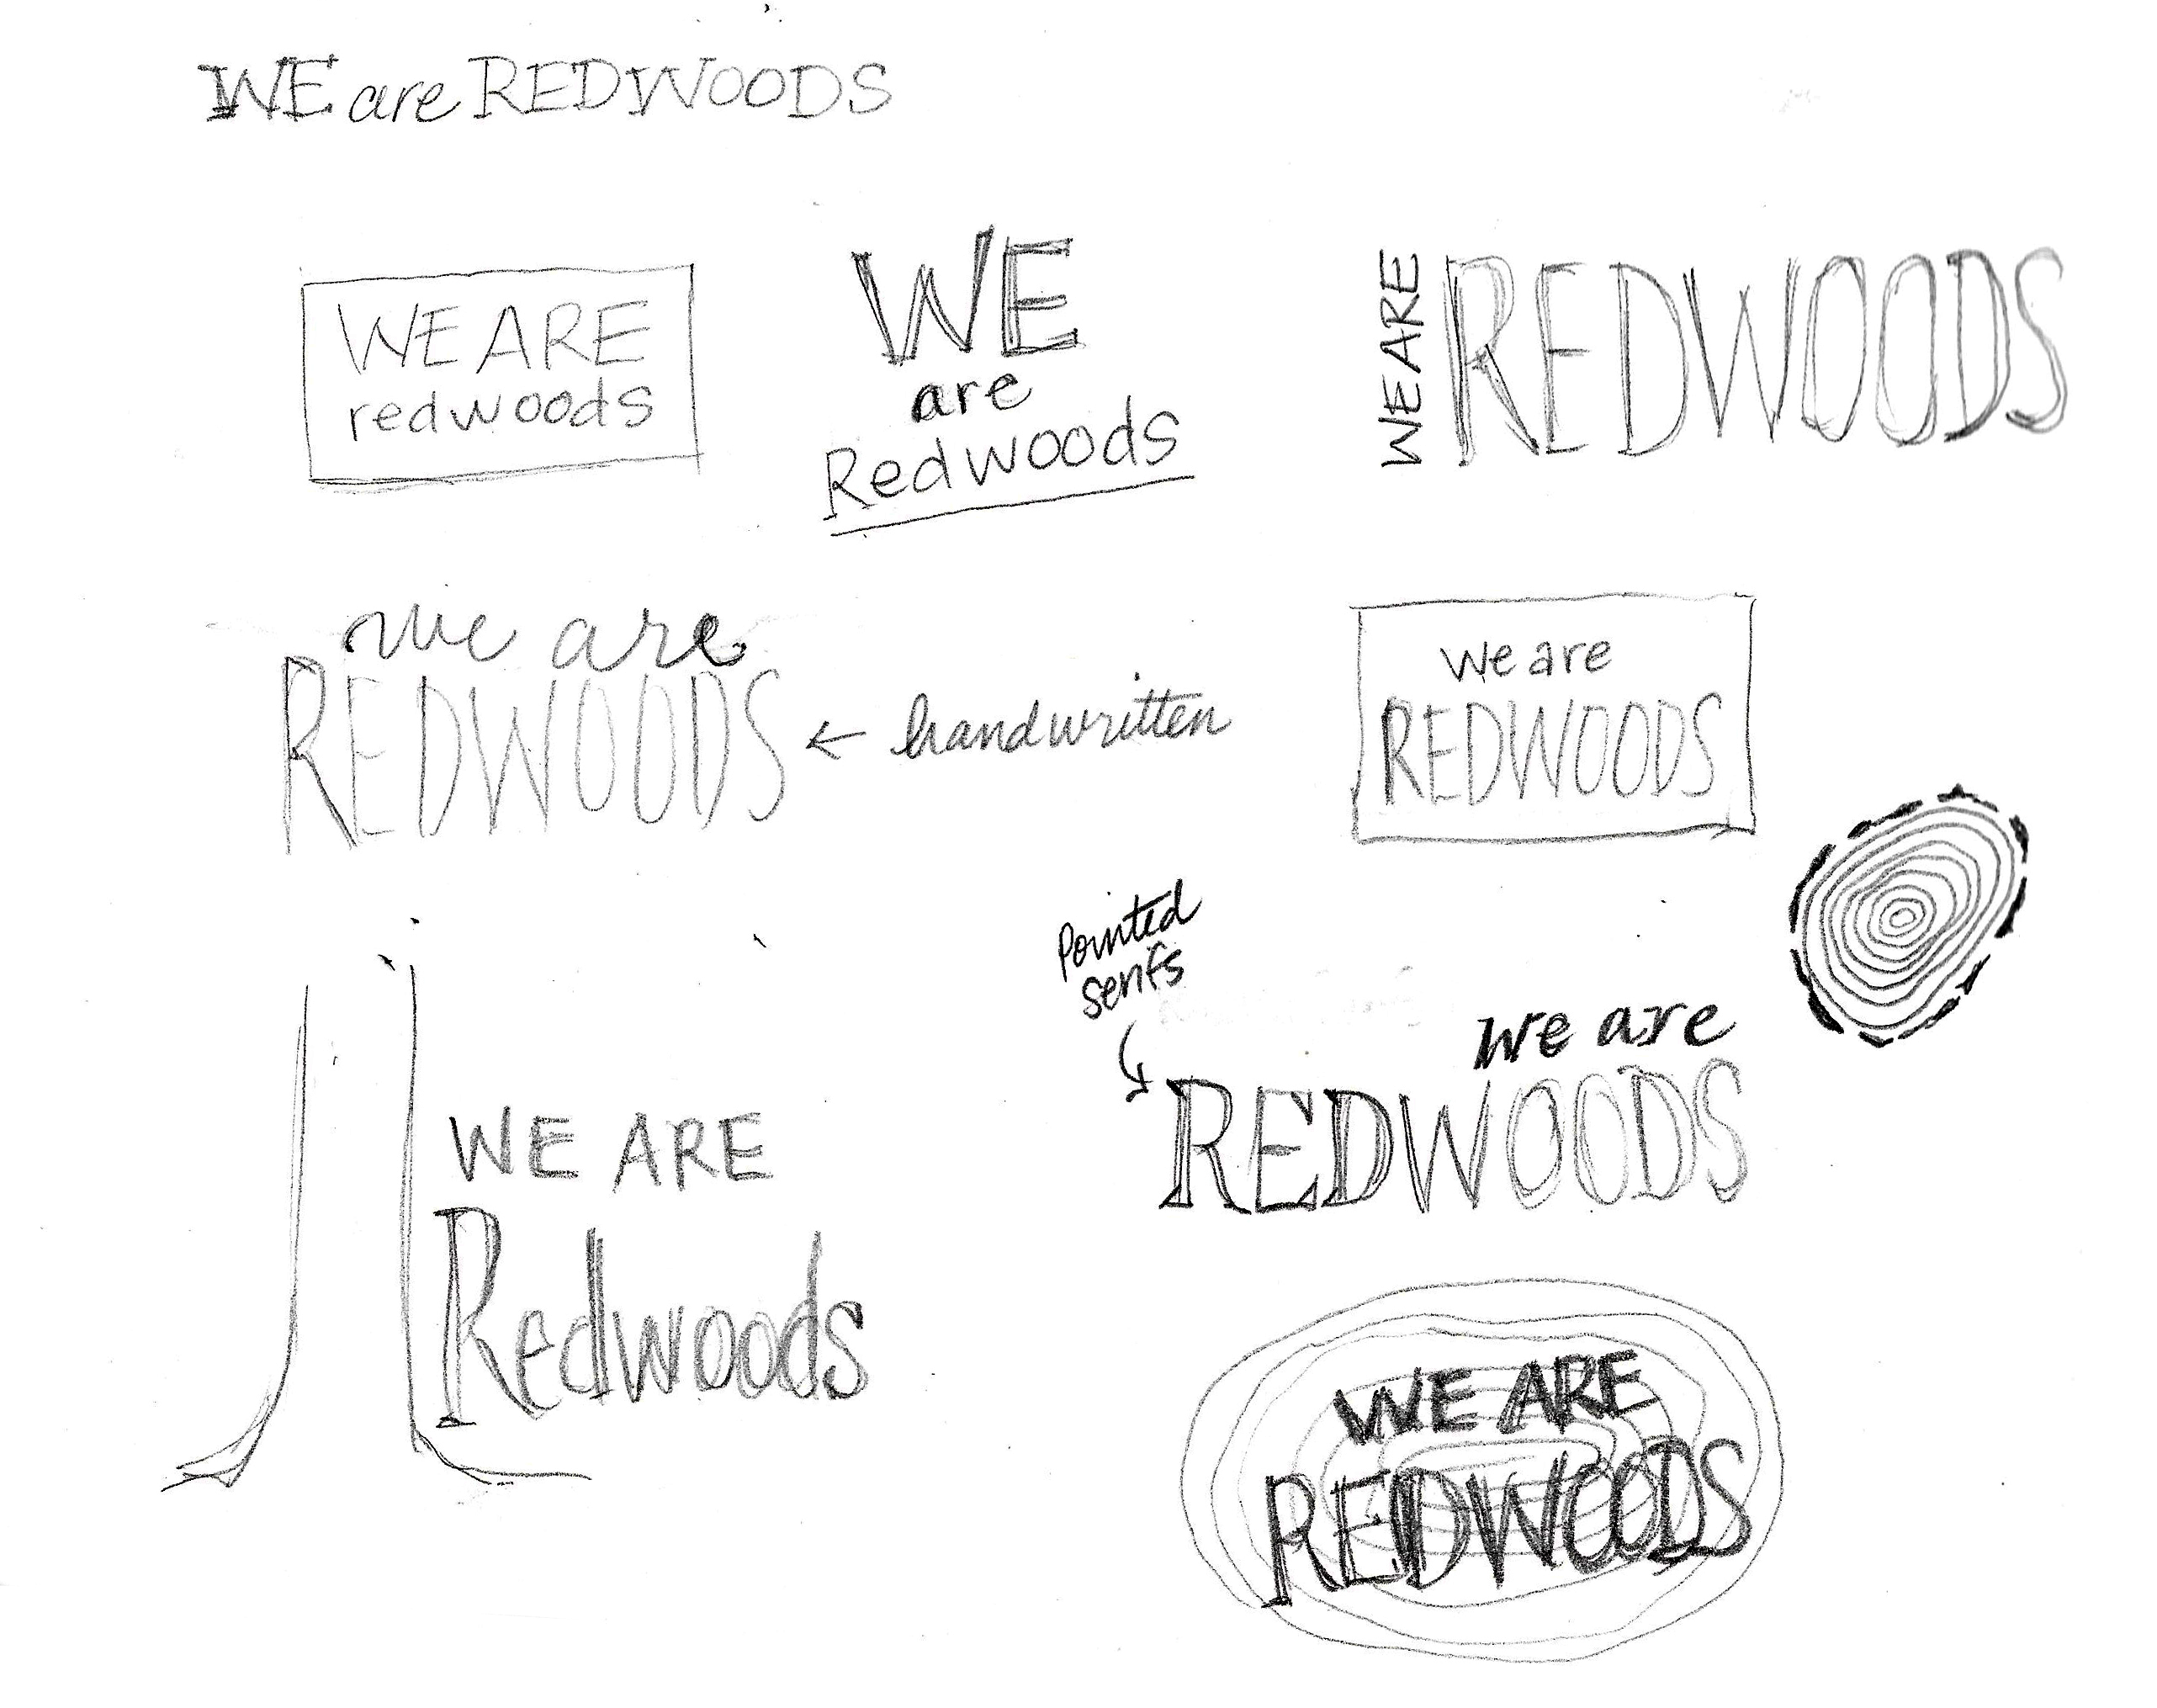 WE are REDWOODS
WE ARE
redwoods
WE
are
Redwoods
WE ARE
REDWOODS
we are
REDWOODS
← handwritten
we are
REDWOODS
Pointed
serifs
we are
REDWOODS
WE ARE
Redwoods
WE ARE
REDWOODS